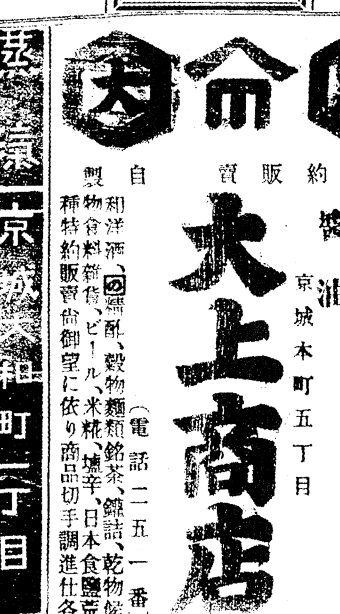 約販賣
自製
大
醬油
京城本町五丁目
大上商店
(電話二五一番
和洋酒、の精酢、穀物麵類銘茶、鑵詰、乾物
物食料雜貨、ビール、米糀、塩辛、日本食鹽
種特約販賣尙御望に依り商品切手調進仕各
京城大和町二丁目